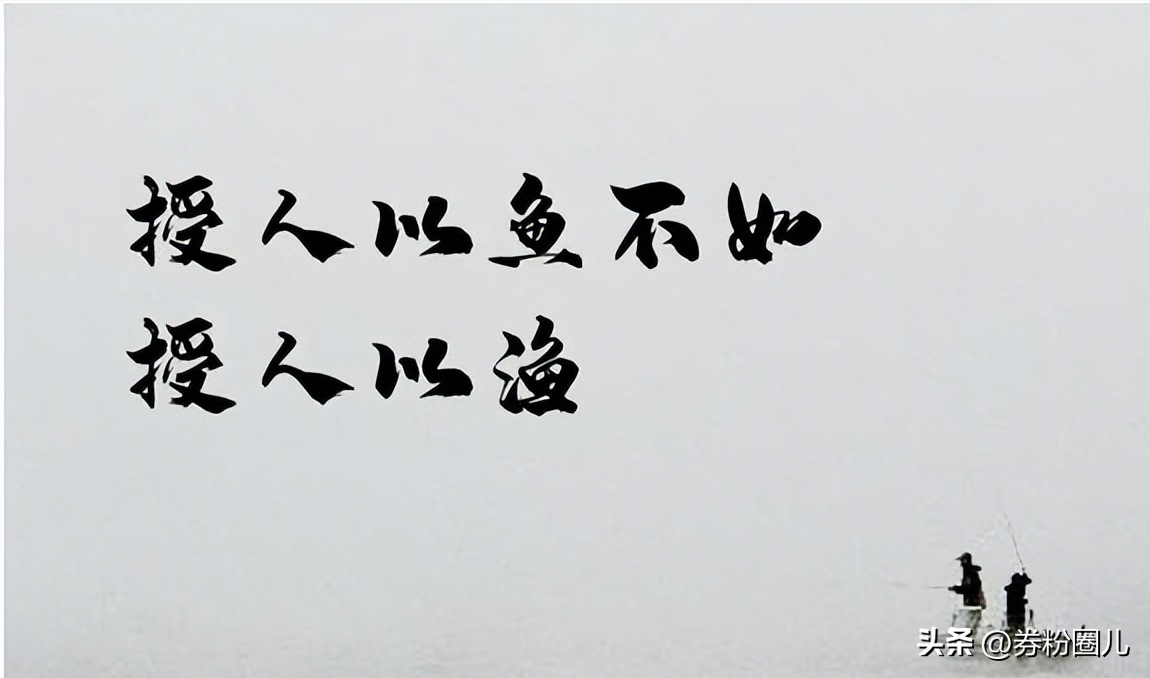 授人以鱼不如
授人以渔
头条 @券粉圈儿